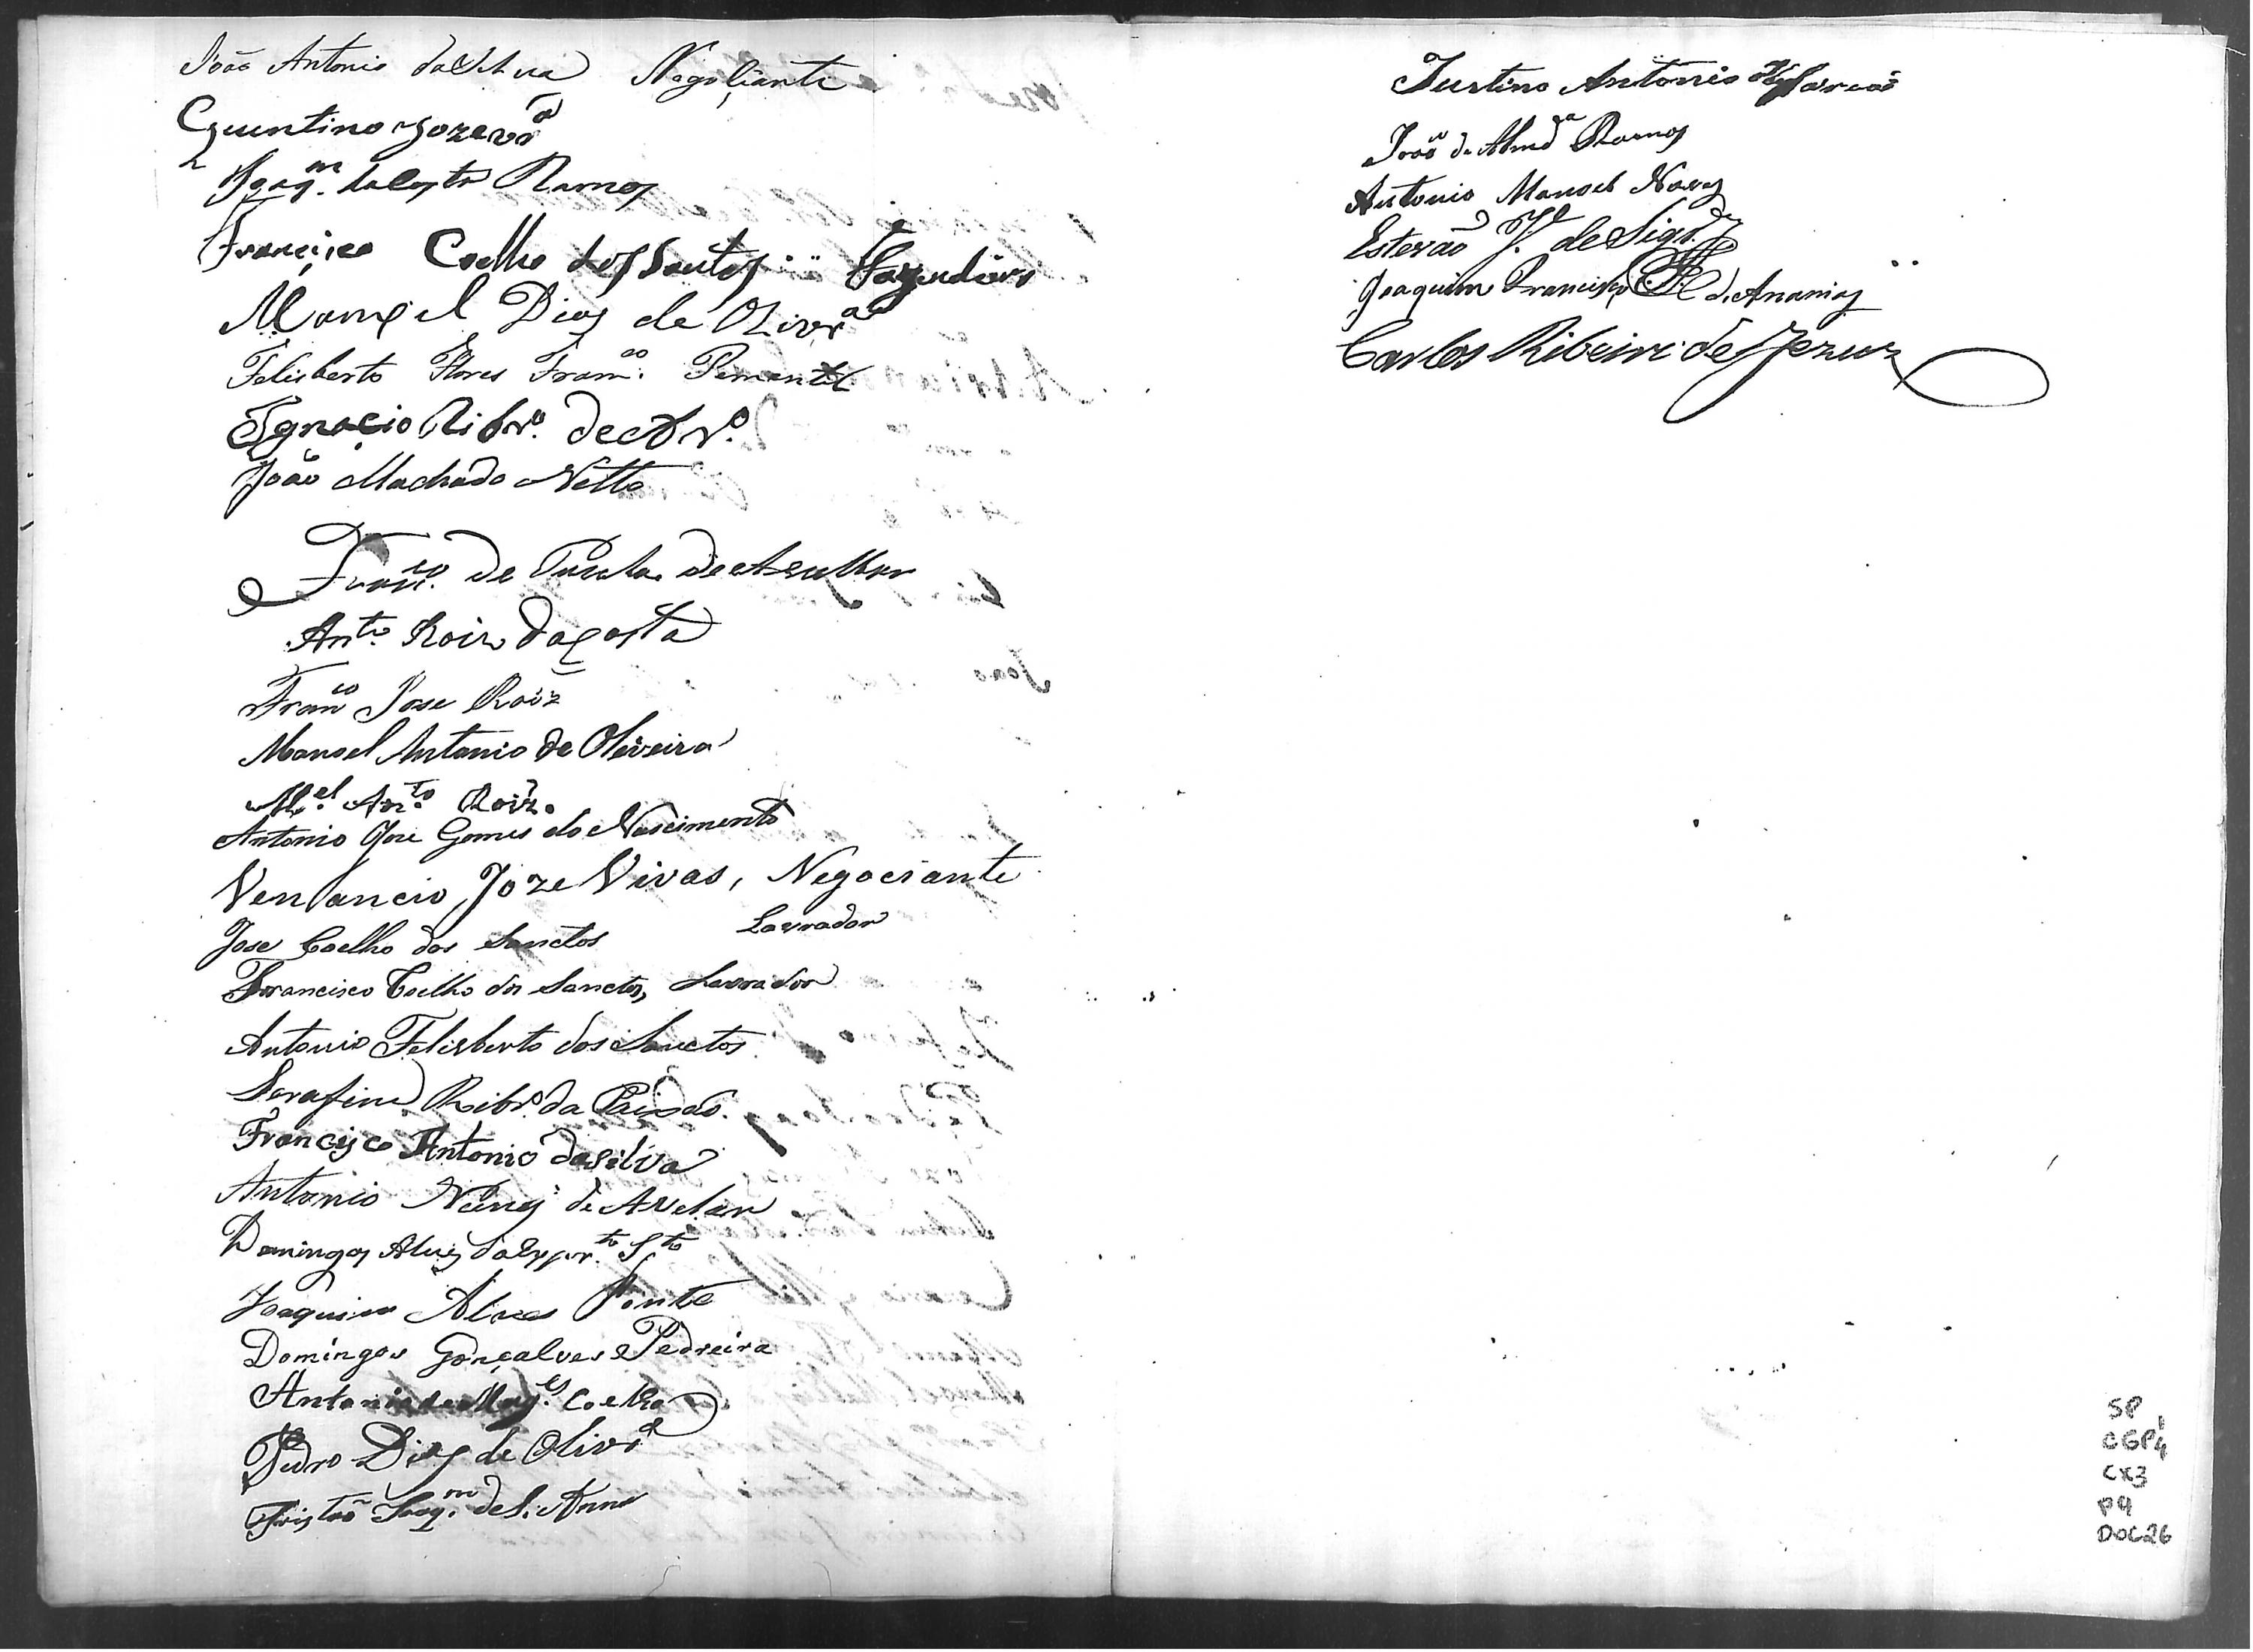 João Antonio da Silva Negoçiante
Quintino Joze
Joaqm. da Costa Ramos
Françisco Coelho dos Santos Fazendeiro
Manoel Dias de Olivra
Felisberto Flores Franco. Pemantel
Ignaçio Ribro. de
João Machado Netto
Franco. de Paula de
Anto. Roiz da Costa
Franco Jose Roiz
Manoel Antonio de Oliveira
Mel. Anto. Roiz.
Antonio Jose Gomes do Nascimento
Venancio Joze Vivas, Negociante
Jose Coelho dos Sanctos Lavrador
Francisco Coelho dos Sanctos, Lavrador
Antonio Felisberto dos Sanctos
Serafim Ribro. da Paixão.
Francisco Antonio da Silva
Antonio Nunes de Avelar
Domingos Alves do Espirto. Sto
Joaquim Alves Ponte
Domingos Gonçalves Pedreira
Antonio de Mages. Coelho
Pedro Dias de Olivra
Tristão Joaqm. de S. Anna
Justino Antonio
João de Almda Ramos
Antonio Manoel Naves
Estevão Je. de Siqa.
Joaquim Francisco d. Ananias
Carlos Ribeiro de Jezuz
SP
CGP1/4
CX3
P9
DOC26